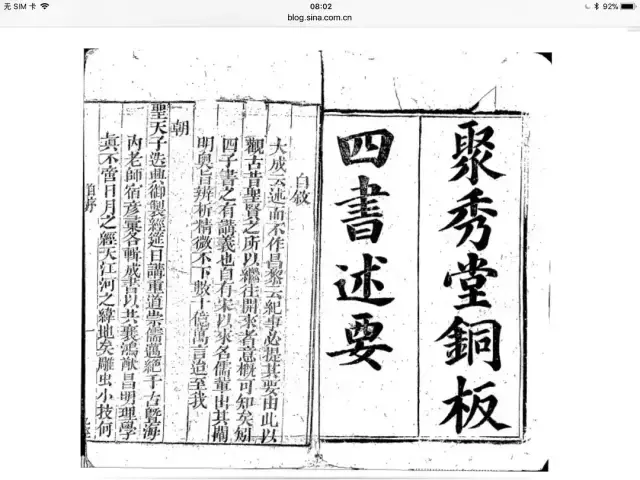 无 SIM 卡
08:02
92%
blog.sina.com.cn
聚秀堂銅板
四書述要
自敘
大成云述而不作昌黎云紀事必提其要由此以
觀古昔聖賢之所以繼往開來者意概可知矣矧
四子書之有講義也自有宋以來名儒輩出其闡
明奧旨辨析精微不下數十億萬言迨至我
朝
聖天子造典御製經筵日講重道崇儒邁絕千古暨海
內老師宿彥彙各輯成書以共襄鴻猷昌明理學
眞不啻日月之經天江河之緯地矣雕虫小技何
自序